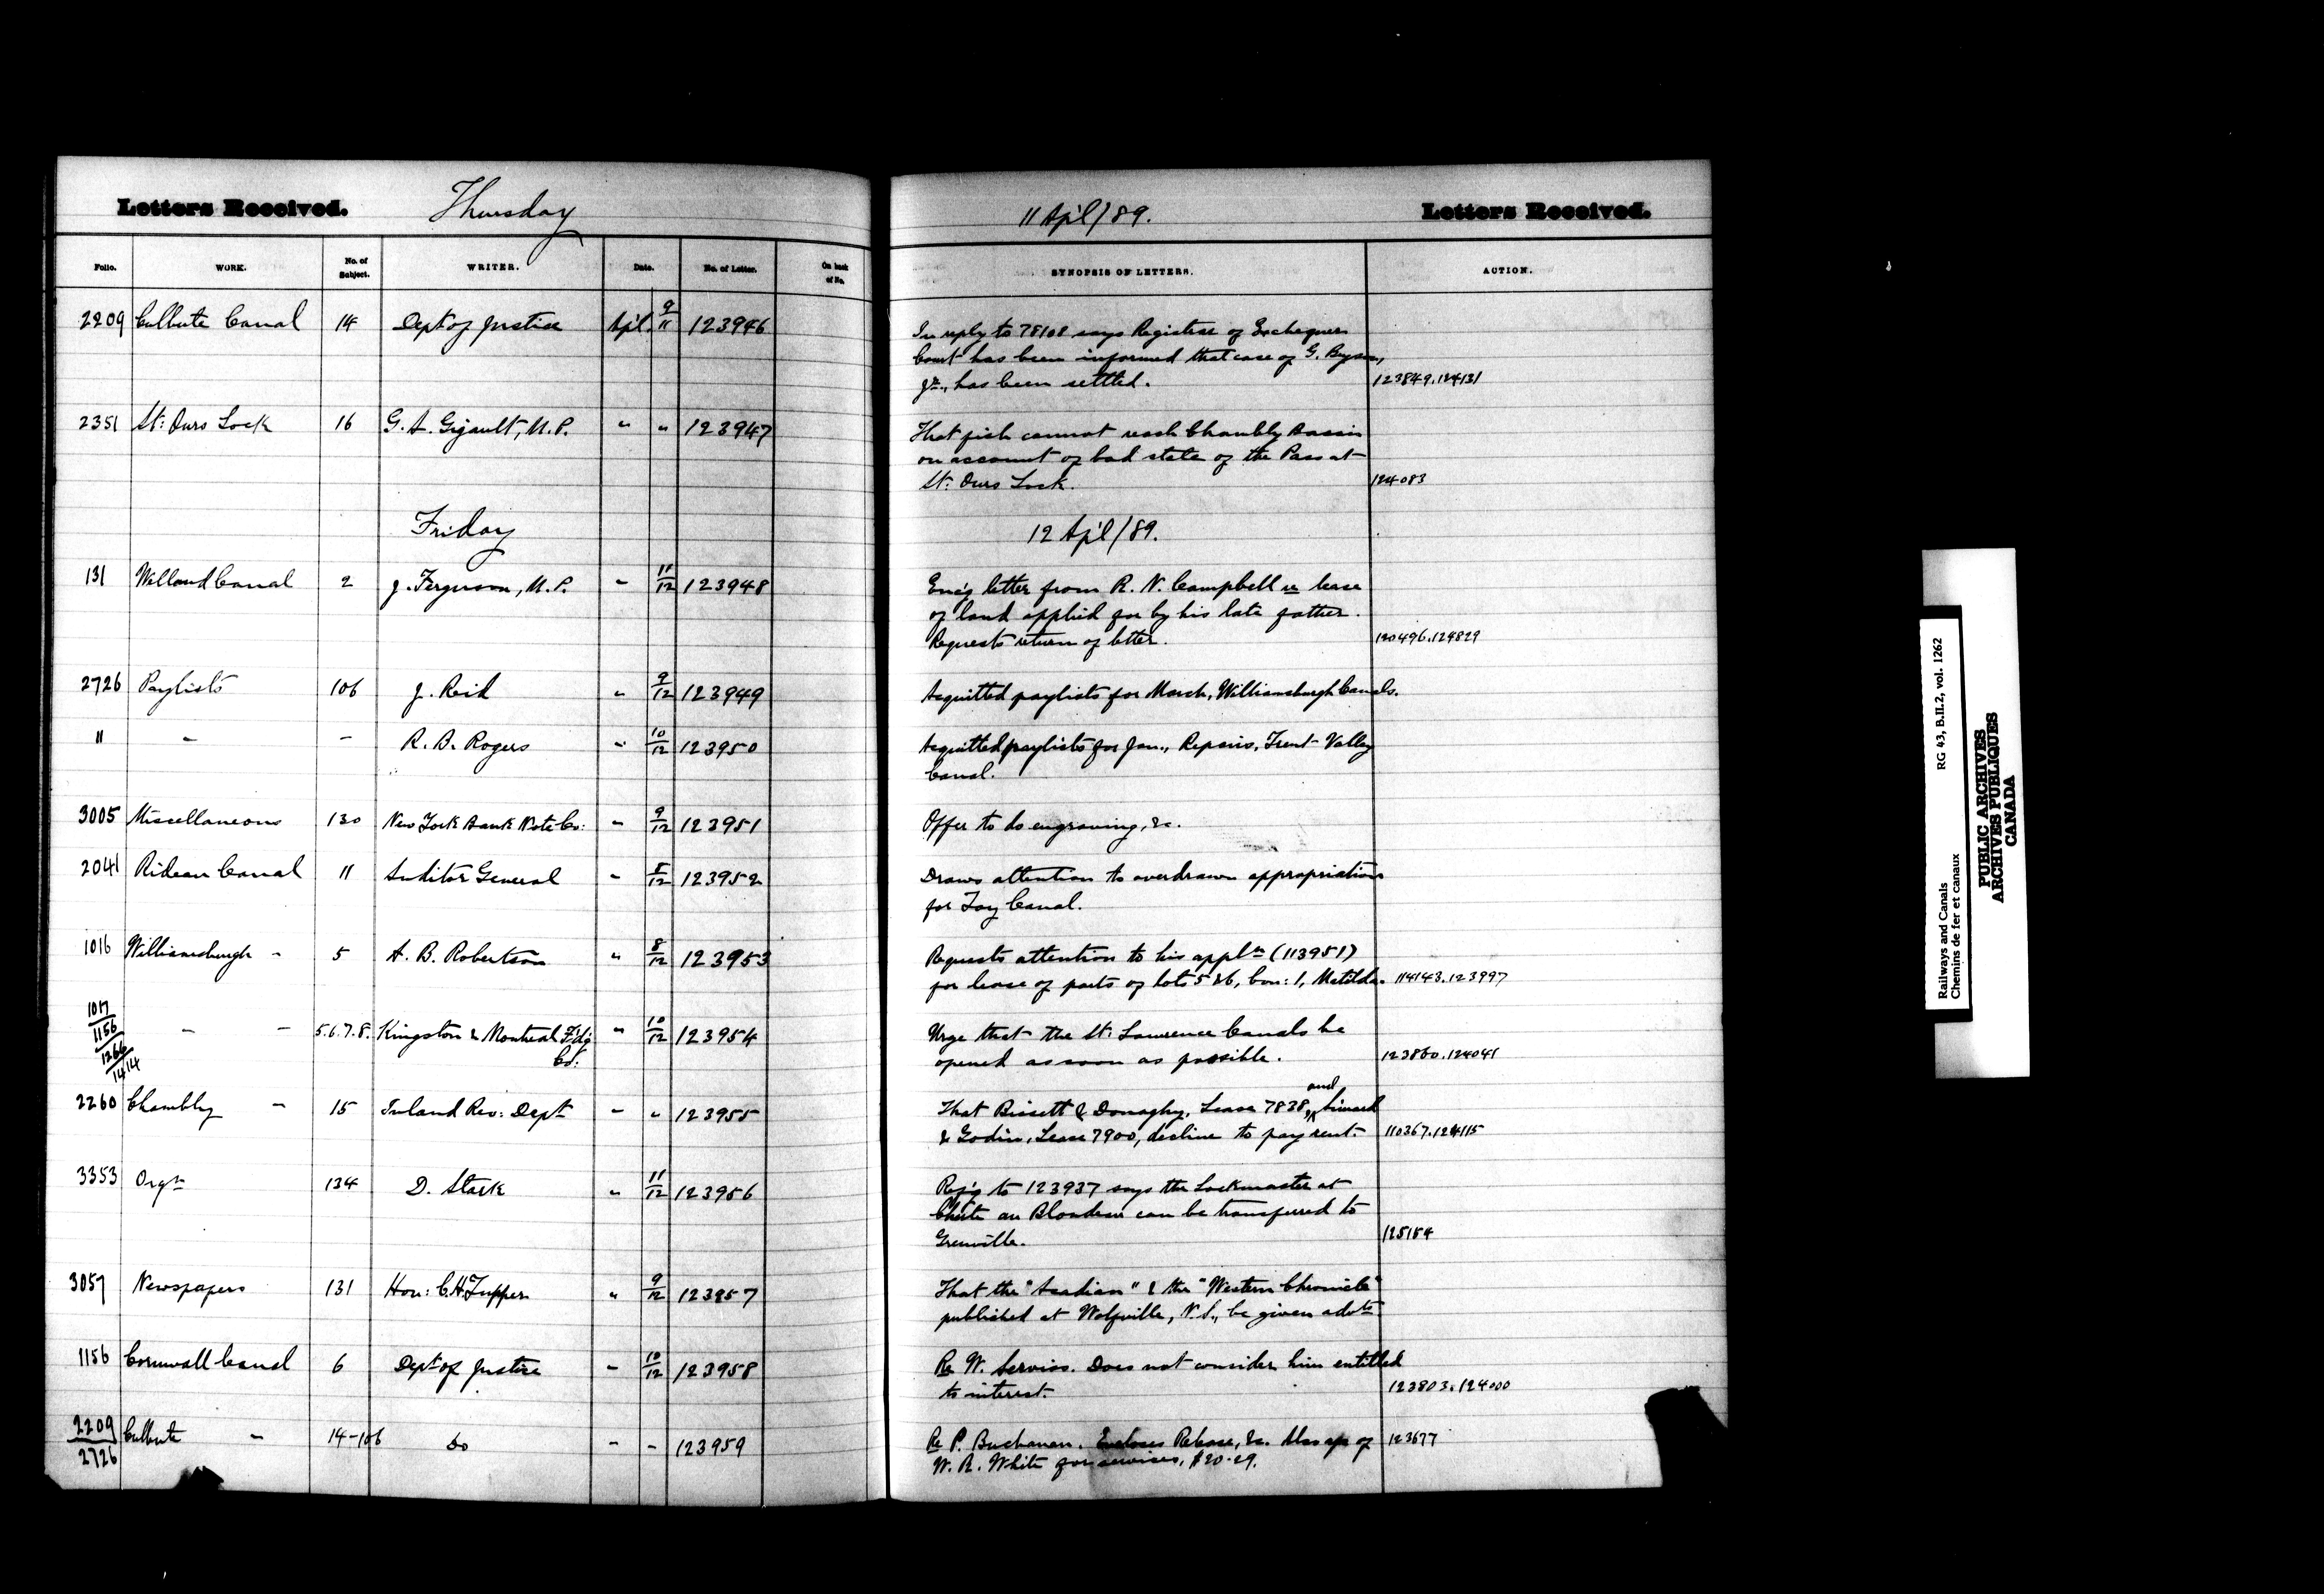 Letters Received. Thursday
Folio. WORK. No. of Subject. WRITER. Date. No. of Letter. On back of No.
2209 Culbute Canal 14 Dept of Justice Apl. 9/11 123946
2351 St: Ours Lock 16 G. A. Gigault, M.P. " " 123947
Friday
131 Welland Canal 2 J. Ferguson, M.P. " 11/12 123948
2726 Paylists 106 J. Reid " 9/12 123949
" " " R. B. Rogers " 10/12 123950
3005 Miscellaneous 130 New York Bank Note Co: " 9/12 123951
2041 Rideau Canal 11 Auditor General " 8/12 123952
1016 Williamsburgh " 5 A. B. Robertson " 8/12 123953
1017/1156/1266/1414 " " 5.6.7.8. Kingston & Montreal F'dg " 10/12 123954
Co:
2260 Chambly " 15 Inland Rev: Dept " " 123955
3353 Orgn 134 D. Stark " 11/12 123956
3057 Newspapers 131 Hon: C.H. Tupper " 9/12 123957
1156 Cornwall Canal 6 Dept of Justice " 10/12 123958
2209/2726 Culbute " 14-106 Do " " 123959
11 Apl/89. Letters Received.
SYNOPSIS OF LETTERS. ACTION.
In reply to 78108 says Registrar of Exchequer
Court has been informed that case of G. Bryson,
Jr., has been settled. 123849.124131
That fish cannot reach Chambly Bassin
on account of bad state of the Pass at
St: Ours Lock. 124083
12 Apl/89.
Enc'g letter from R. N. Campbell re lease
of land applied for by his late father.
Requests return of letter. 120496.124829
Acquitted paylists for March, Williamsburgh Canals.
Acquitted paylists for Jan., Repairs, Trent Valley
Canal.
Offer to do engraving, &c.
Draws attention to overdrawn appropriation
for Tay Canal.
Requests attention to his appln (113951)
for lease of parts of lots 5 & 6, Con: 1, Matilda. 114143.123997
Urge that the St: Lawrence Canals be
opened as soon as possible. 123860.124041
That Bissett & Donaghy, Lease 7838, and Simard
& Godin, Lease 7900, decline to pay rent. 110367.124115
Rep'g to 123937 says the Lockmaster at
Chute au Blondeau can be transferred to
Grenville. 125184
That the "Acadian" & the "Western Chronicle"
published at Wolfville, N.S., be given advts
Re W. Serviss. Does not consider him entitled
to interest. 123803.124000
Re P. Buchanan. Encloses Release, &c. Also a/c of 123677
W. R. White for services, $20.29.
Railways and Canals RG 43, B.II.2, vol. 1262
Chemins de fer et canaux
PUBLIC ARCHIVES
ARCHIVES PUBLIQUES
CANADA